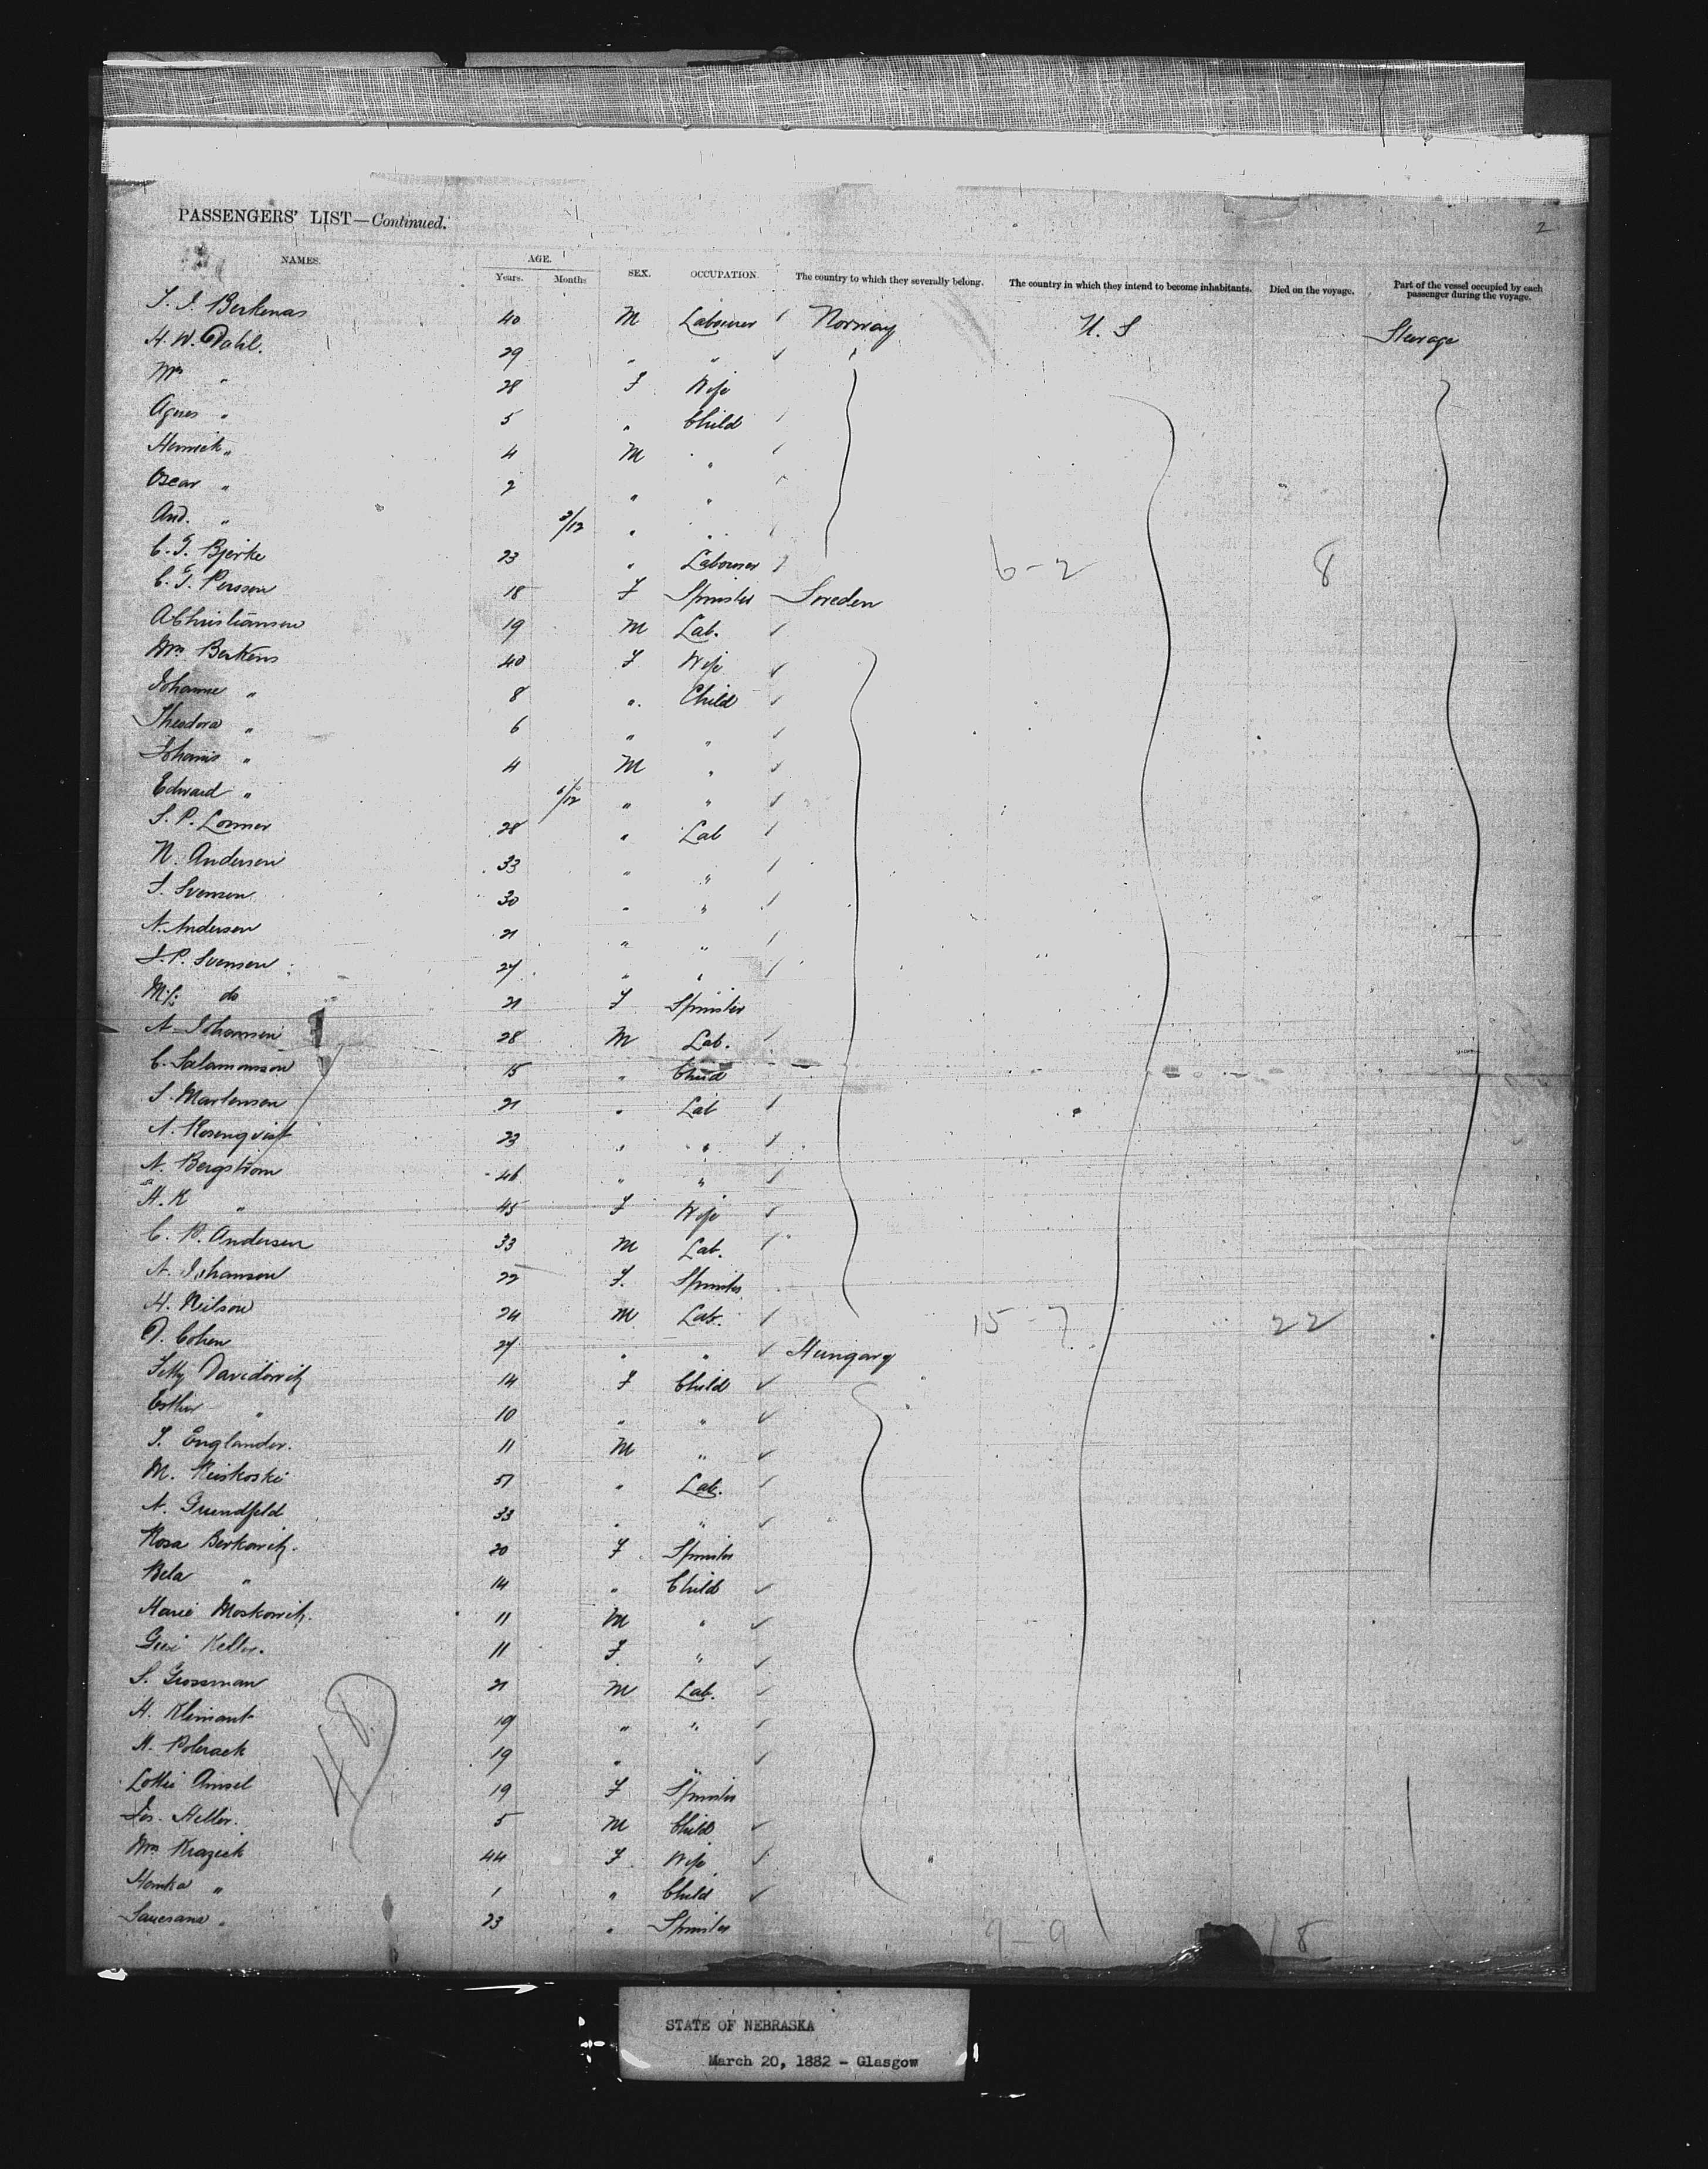 2
PASSENGERS' LIST—Continued.
NAMES. AGE. Years. Months SEX. OCCUPATION. The country to which they severally belong. The country in which they intend to become inhabitants. Died on the voyage. Part of the vessel occupied by each passenger during the voyage.
J. J. Berkenas 40 M Labourer Norway U. S Steerage
H. W. Dahl. 29 " "
Mrs " 28 F Wife
Agnes " 5 " Child
" 4 M "
Oscar " 2 " "
And. " 3/12 " "
C. J. Bjerke 23 " Labourer 6-2 8
C. J. Persson 18 F Spinster Sweden
A Christiansen 19 M Lab.
Mrs Berkens 40 F Wife
Johanne " 8 " Child
Theodora " 6 " "
Johanis " 4 M "
Edward " 6/12 " "
S. P. 28 " Lab
N. Andersen 33 " "
S. Svensen 30 " "
A. Anderson 21 " "
J. P. Svensen 27 " "
do 21 F Spinster
A Johansen 28 M Lab.
C. Salamonsson 15 " Child
S. Martenson 21 " Lab
A. Rosenqvist 23 " "
A. Bergstrom 46 " "
A. K " 45 F Wife
C. P. Andersen 33 M Lab.
A. Johansen 22 F. Spinster
H. Neilson 24 M Lab. 15-7 22
D. Cohen 27 " " Hungary
Davidovitz 14 F Child
Esther " 10 " "
Englander. 11 M "
M. " Lab.
A. Grundfeld 33 " "
Rosa Berkovitz. 20 F Spinster
Bela " 14 " Child
Marie Moskovitz. 11 M "
Keller. 11 F. "
S. Grossman 21 M Lab.
H. Klimant 19 " "
M. Polerack 19 " "
Lottie Amsel 19 F Spinster
Jos. Heller. 5 M Child
Mrs 44 F Wife
" 1 " Child
" 23 " Spinster 9-9 18
48.
STATE OF NEBRASKA
March 20, 1882 - Glasgow